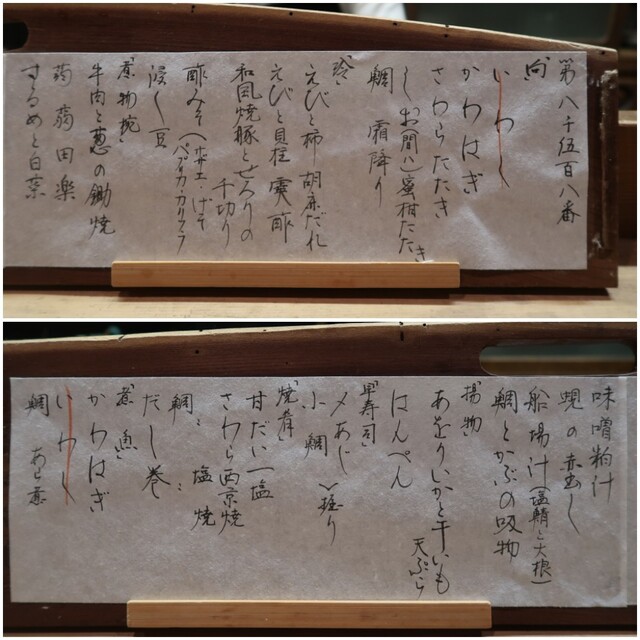 第八千伍百八番
「向」
いわし
かわはぎ
さわらたたき
しお(間八)蜜柑たたき
鯛 霜降り
「冷」
えびと柿 胡麻だれ
えびと貝柱 黄酢
和風焼豚とせろりの
千切り
酢みそ(サザエ・げそ
パプリカ・カリフラ
浸し豆
「煮物椀」
牛肉と葱の鋤焼
蒟蒻田楽
するめと白菜
味噌粕汁
蜆の赤出し
船場汁(塩鯖と大根)
鯛とかぶの吸物
「揚物」
あおりいかと干いも
天ぷら
はんぺん
「早寿司」
〆あじ
小鯛 握り
「焼肴」
甘だい一塩
さわら西京焼
鯛 塩焼
だし巻
「煮魚」
かわはぎ
いわし
鯛 あら煮